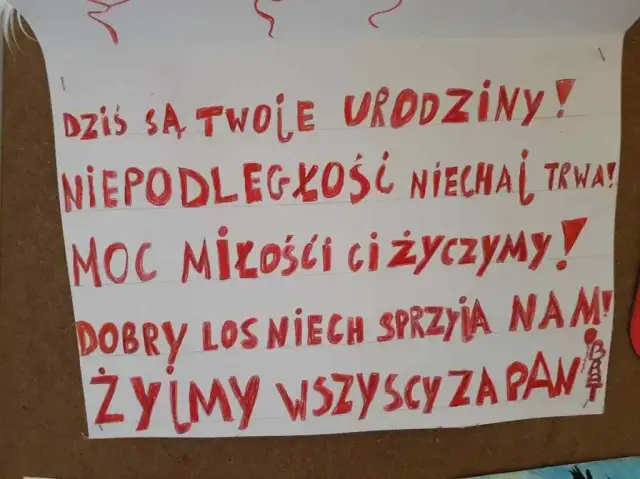 DZIŚ SĄ TWOJE URODZINY!
NIEPODLEGŁOŚĆ NIECHAJ TRWA!
MOC MIŁOŚCI CI ŻYCZYMY!
DOBRY LOS NIECH SPRZYJA NAM!
ŻYJMY WSZYSCY ZA PAN BRAT